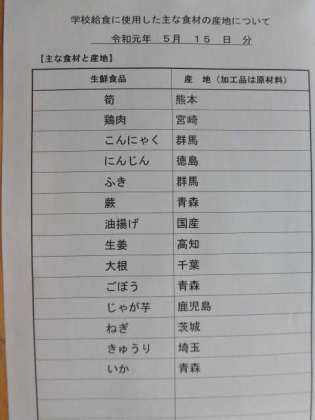 学校給食に使用した主な食材の産地について
令和元年 5月 15 日 分
【主な食材と産地】
生鮮食品 産 地（加工品は原材料）
筍 熊本
鶏肉 宮崎
こんにゃく 群馬
にんじん 徳島
ふき 群馬
蕨 青森
油揚げ 国産
生姜 高知
大根 千葉
ごぼう 青森
じゃが芋 鹿児島
ねぎ 茨城
きゅうり 埼玉
いか 青森